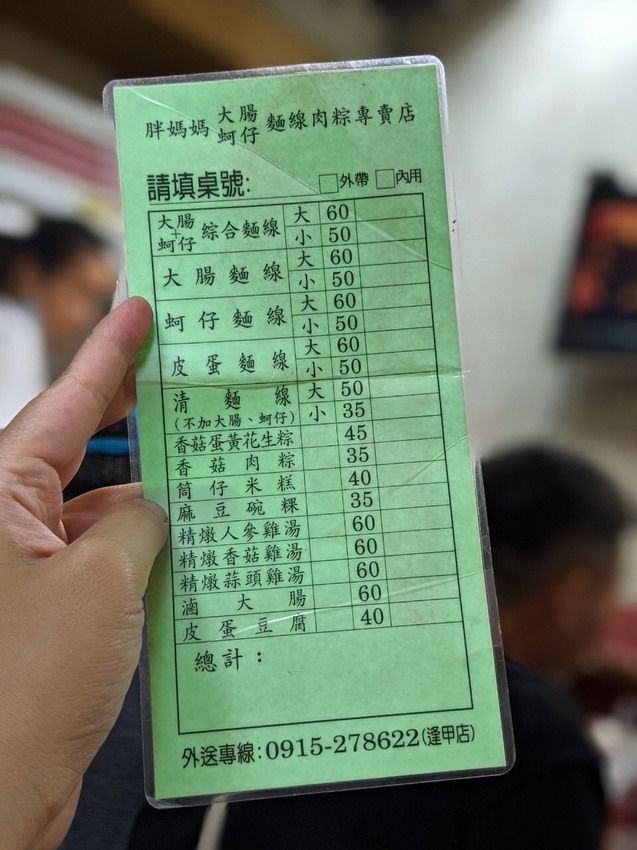 胖媽媽 大腸 蚵仔 麵線肉粽專賣店
請填桌號: □外帶 □內用
大腸+蚵仔 綜合麵線 大 60
小 50
大腸麵線 大 60
小 50
蚵仔麵線 大 60
小 50
皮蛋麵線 大 60
小 50
清麵線 大 50
(不加大腸、蚵仔) 小 35
香菇蛋黃花生粽 45
香菇肉粽 35
筒仔米糕 40
麻豆碗粿 35
精燉人參雞湯 60
精燉香菇雞湯 60
精燉蒜頭雞湯 60
滷大腸 60
皮蛋豆腐 40
總計：
外送專線:0915-278622(逢甲店)